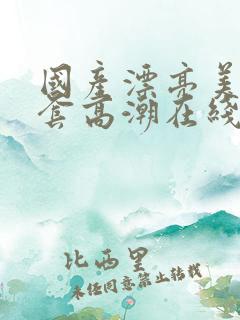 國產漂亮美
套高潮在綫
比西里
未经同意禁止转载